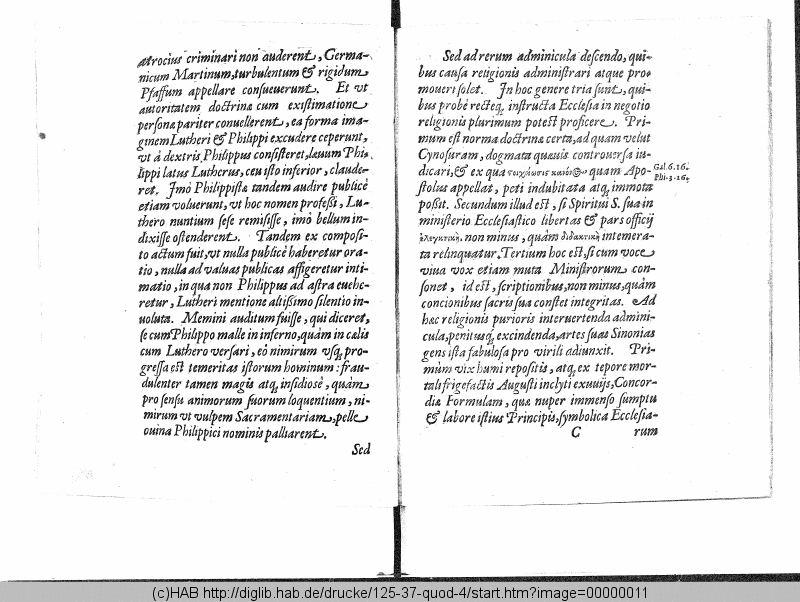 atrocius criminari non auderent, Germa-
nicum Martinum, turbulentum & rigidum
Pfaffum appellare consueuerunt. Et vt
autoritatem doctrinæ cum existimatione
personæ pariter conuellerent, ea forma ima-
ginem Lutheri & Philippi excudere ceperunt,
vt à dextris Philippus consisteret, læuum Phi-
lippi latus Lutherus, ceu isto inferior, claude-
ret. Imò Philippistæ tandem audire publicè
etiam voluerunt, vt hoc nomen professi, Lu-
thero nuntium sese remisisse, imò bellum in-
dixisse ostenderent. Tandem ex composi-
to actum fuit, vt nulla publicè haberetur ora-
tio, nulla ad valuas publicas affigeretur inti-
matio, in qua non Philippus ad astra euehe-
retur, Lutheri mentione altissimo silentio in-
uoluta. Memini auditum fuisse, qui diceret,
se cum Philippo malle in inferno, quàm in cælis
cum Luthero versari, eò nimirum vsq́, pro-
gressa est temeritas istorum hominum: frau-
dulenter tamen magis atq́, insidiosè, quàm
pro sensu animorum suorum loquentium, ni-
mirum vt vulpem Sacramentariam, pelle
ouina Philippici nominis palliarent.
Sed
Sed ad rerum adminicula descendo, qui-
bus causa religionis administrari atque pro-
moueri solet. In hoc genere tria sunt, qui-
bus probè recteq́, instructa Ecclesia in negotio
religionis plurimum potest proficere. Pri-
mum est norma doctrinæ certa, ad quam velut
Cynosuram, dogmata quæuis controuersa iu-
dicari, & ex qua quam Apo-
Gal. 6. 16.
Phi. 3. 16.
stolus appellat, peti indubitata atq́, immota
possit. Secundum illud est, si Spiritui S. sua in
ministerio Ecclesiastico libertas & pars officij
ἐλεγκτικὴ, non minus, quàm διδακτικὴ intemera-
ta relinquatur. Tertium hoc est, si cum voce
viua vox etiam muta Ministrorum con-
sonet, id est, scriptionibus, non minus, quàm
concionibus sacris sua constet integritas. Ad
hæc religionis purioris interuertenda admini-
cula, penitusq́, excindenda, artes suas Sinonias
gens ista fabulosa pro virili adiunxit. Pri-
mùm vix humi repositis, atq́, ex tepore mor-
tali frigefactis Augusti inclyti exuuijs, Concor-
diæ Formulam, quæ nuper immenso sumptu
& labore istius Principis, symbolica Ecclesia-
C rum
(c)HAB http://diglib.hab.de/drucke/125-37-quod-4/start.htm?image=00000011